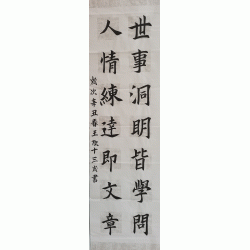 世事洞明皆學問
人情練達即文章
歲次辛丑春王玫十三歲書